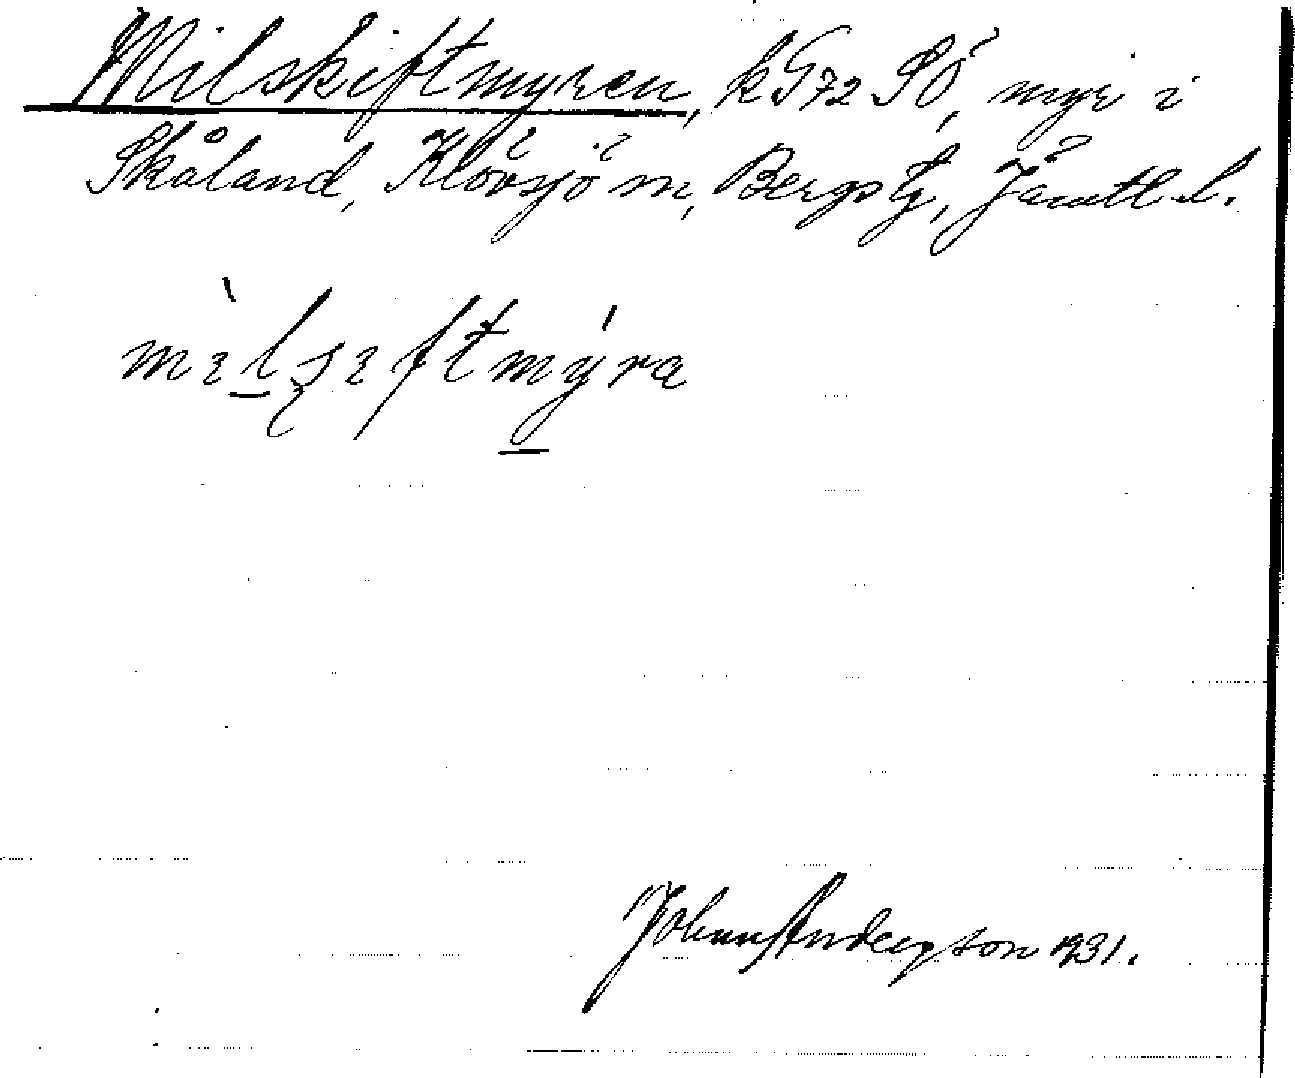 Milskiftmyren, k G72 SÖ, myr i
Skåland, Klövsjö sn, Bergs tg, Jämtl l.
Johan Anderson 1931.